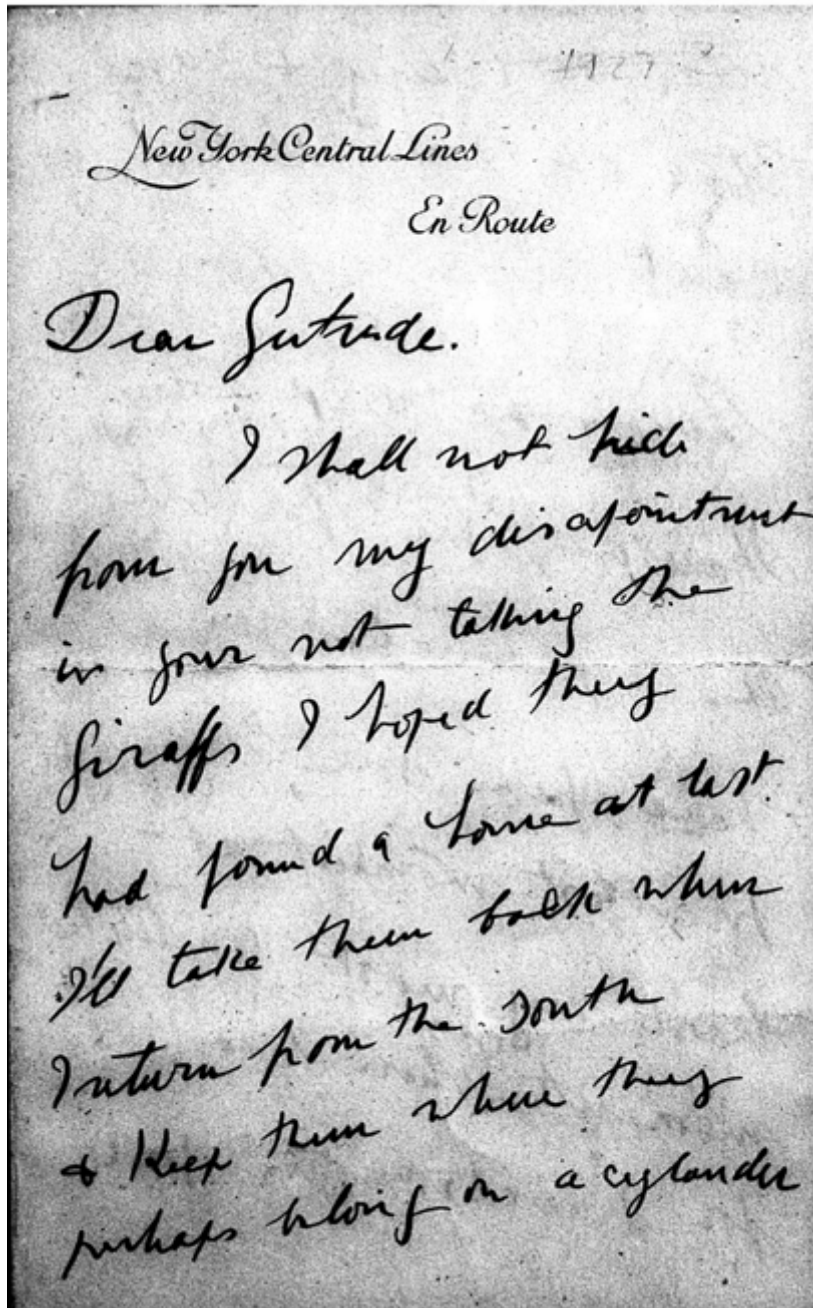 1927 ?
New York Central Lines
En Route
Dear Gertrude.
I shall not hide
from you my disapointment
in your not taking the
Giraffs I hoped they
had found a home at last
I'll take them back when
I return from the south
& Keep them where they
perhaps belong on a cylander